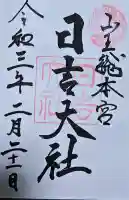 山王総本宮
日吉大社
令和三年二月二十一日